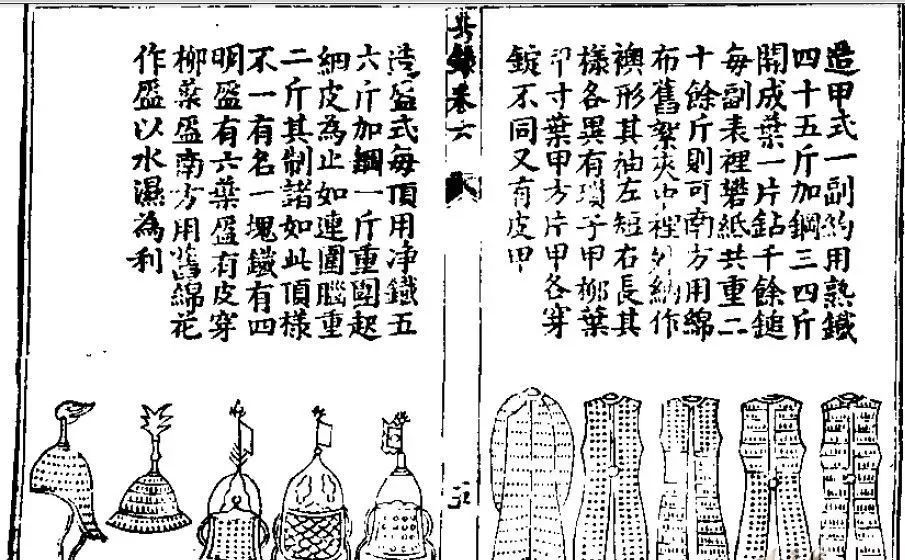 造甲式一副約用熟鐵
四十五斤加鋼三四斤
開成葉一片鉆千餘鎚
每副表裡礬紙共重二
十餘斤則可南方用綿
布舊絮夾中裡外納作
襖形其袖左短右長其
樣各異有瑣子甲柳葉
甲寸葉甲方片甲各穿
錠不同又有皮甲
兵錄卷六
造盔式每頂用净鐵五
六斤加鋼一斤重圍起
網皮為止如連圍腦重
二斤其制諸如此頂樣
不一有名一塊鐵有四
明盔有六葉盔有皮穿
柳葉盔南方用舊綿花
作盔以水濕為利